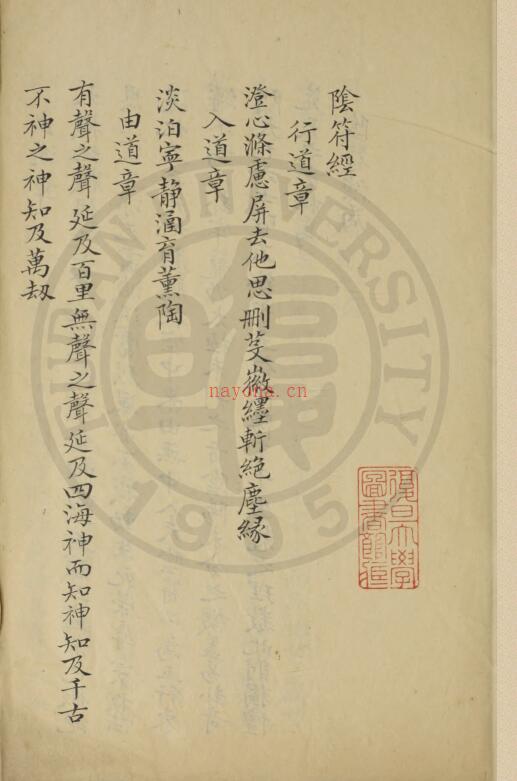 陰符經
行道章
澄心滌慮屏去他思刪芟嶶纆斬絕塵緣
入道章
淡泊寧靜涵育薰陶
由道章
有聲之聲延及百里無聲之聲延及四海神而知神知及千古
不神之神知及萬劫
復旦大學
圖書館藏
nayona.cn
FUDAN UNIVERSITY
1905